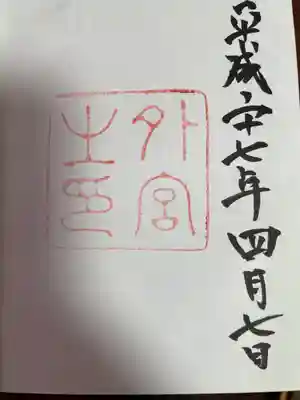 平成二十七年四月七日
外宮
之印